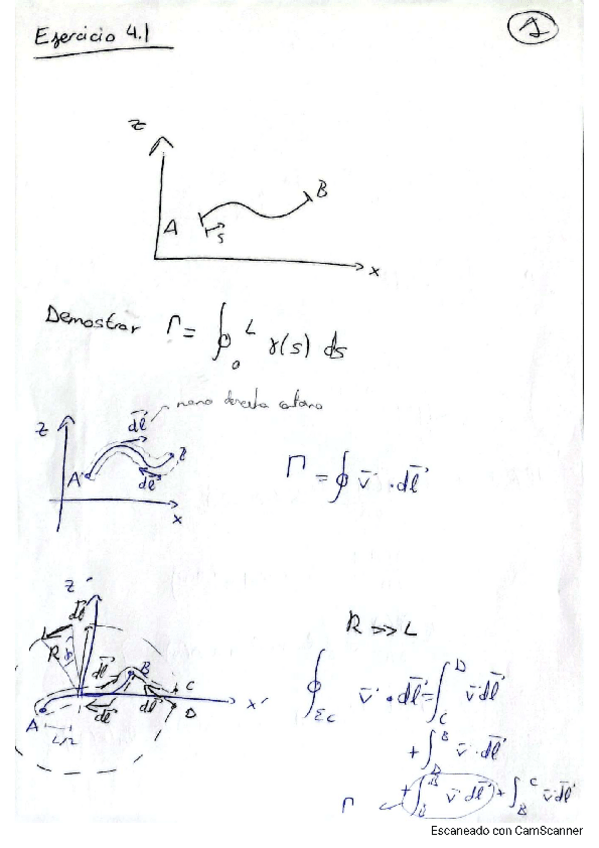 Ejercicio 4.1
1
z
B
A
s
x
Demostrar Γ = ∮₀ᴸ γ(s) ds
mano derecha
dl
z
A
dl
x
Γ = ∮ v · dl
z'
dl
R
R >> L
B
dl
C
D
dl
dl
x'
A
L/2
∮ v · dl = ∫_C^D v dl
+ ∫_D^B v · dl
Γ
v · dl + ∫_B^C v dl
Escaneado con CamScanner